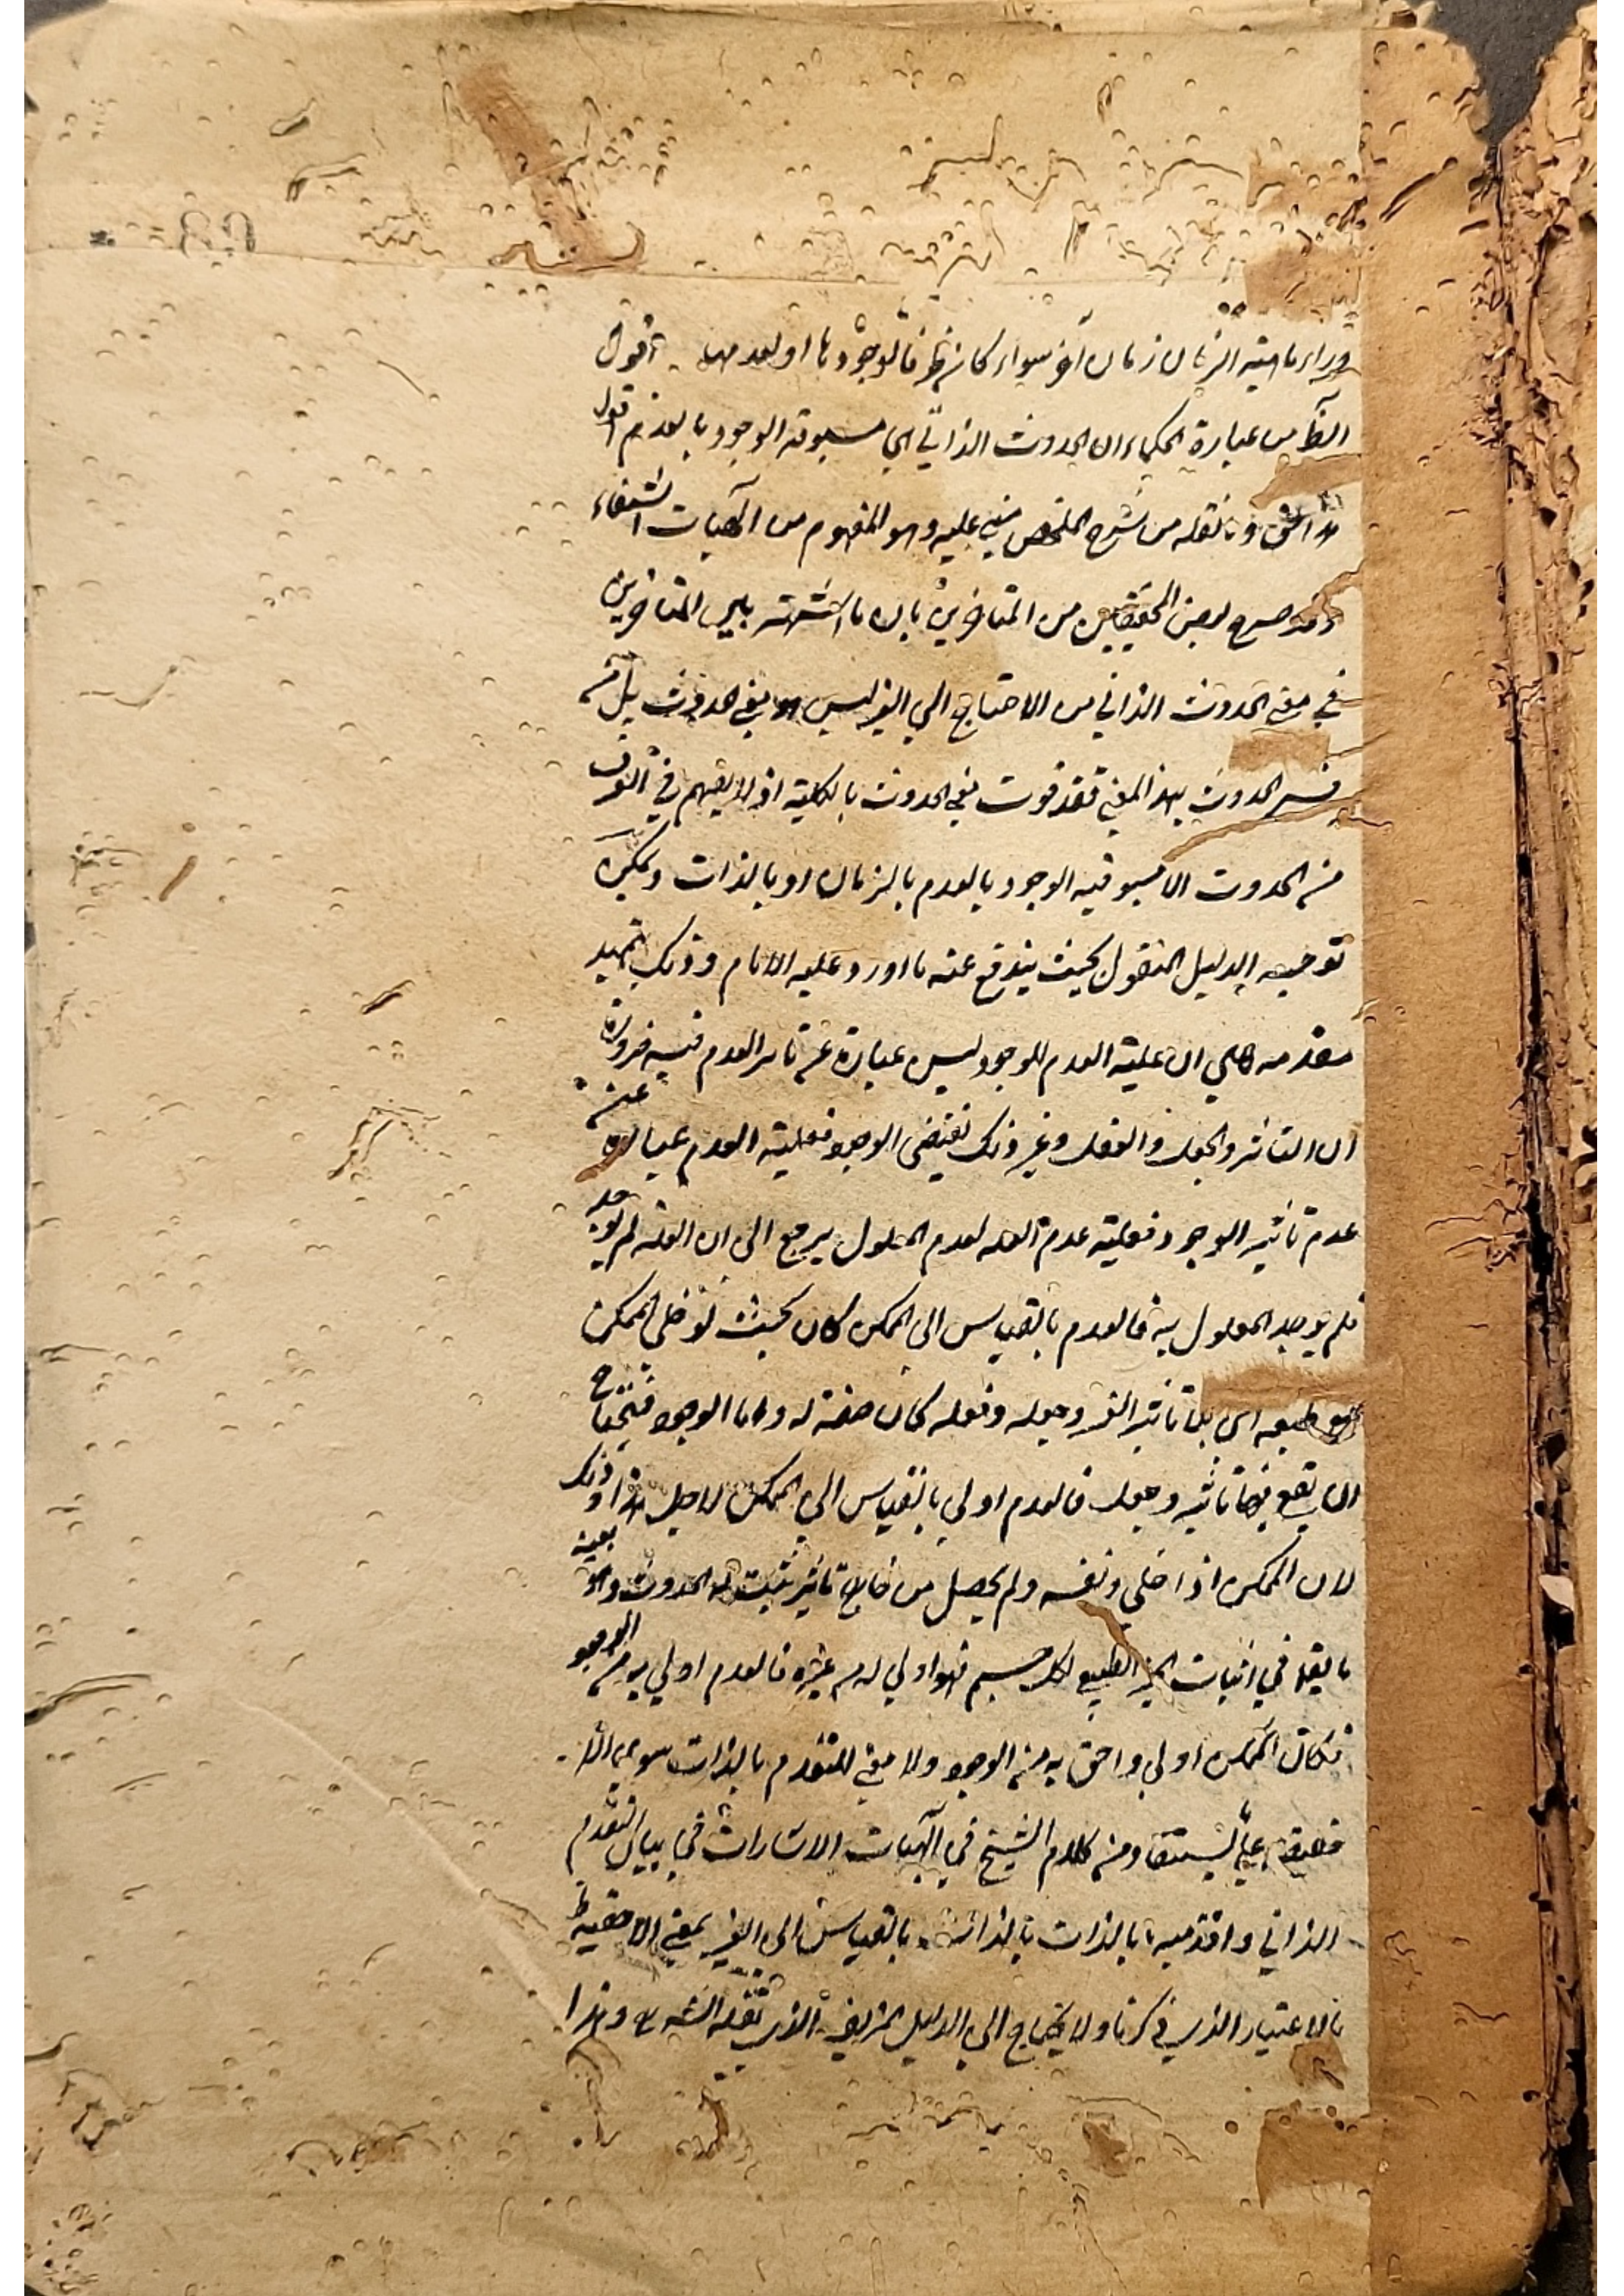 وراء ماهية الزمان زمان آخر سواء كان ظرفا لوجودها او لعدمها اقول
الظ من عبارة الحكماء ان الحدوث الذاتي اي مسبوقية الوجود بالعدم اقول
هذا الحق وما نقله من شرح الملخص مبني عليه وهو المفهوم من آلهيات الشفاء
وقد صرح بعض المحققين من المتاخرين بان ما اشتهر بين المتاخرين
في معنى الحدوث الذاتي من الاحتياج الى الغير ليس هو معنى الحدوث بل من
فسر الحدوث بهذا المعنى فقد فوت معنى الحدوث بالكلية اذ لا يفهم في العرف
من الحدوث الا مسبوقية الوجود بالعدم بالزمان او بالذات ويمكن
توجيه الدليل المنقول بحيث يندفع عنه ما اورد عليه الامام وذلك بتمهيد
مقدمة هي ان علية العدم للوجود ليس عبارة عن تاثير العدم فيه ضرورة
ان التاثير والجعل والفعل وغير ذلك تقتضي الوجود فعلية العدم عبارة عن
عدم تاثير الوجود فعلية عدم العلة لعدم المعلول يرجع الى ان العلة لم يوجد
فلم يوجد المعلول به فالعدم بالقياس الى الممكن كان بحيث لو خلى الممكن
مع طبعه اى بلا تاثير الغير وجعله وفعله كان صفة له واما الوجود فيحتاج
ان يقع فيها تاثير وجعل فالعدم اولى بالقياس الى الممكن لاجل هذا وذلك
لان الممكن اذا خلى ونفسه ولم يحصل من خارج تاثير يثبت له الحدوث وهو بعينه
ما يقال في اثبات الحيز الطبيعي لكل جسم فهو اولى له من غيره فالعدم اولى به من الوجود
فكان الممكن اولى واحق به من الوجود ولا معنى للتقدم بالذات سوى الا
حقية على يستفاد من كلام الشيخ في آلهيات الاشارات في بيان التقدم
الذاتي واقدمية ما بالذات بالقياس الى الغير بمعنى الاحقية
بالاعتبار الذي ذكرنا ولا يحتاج الى الدليل المزيف الذي نقله الش وهذا